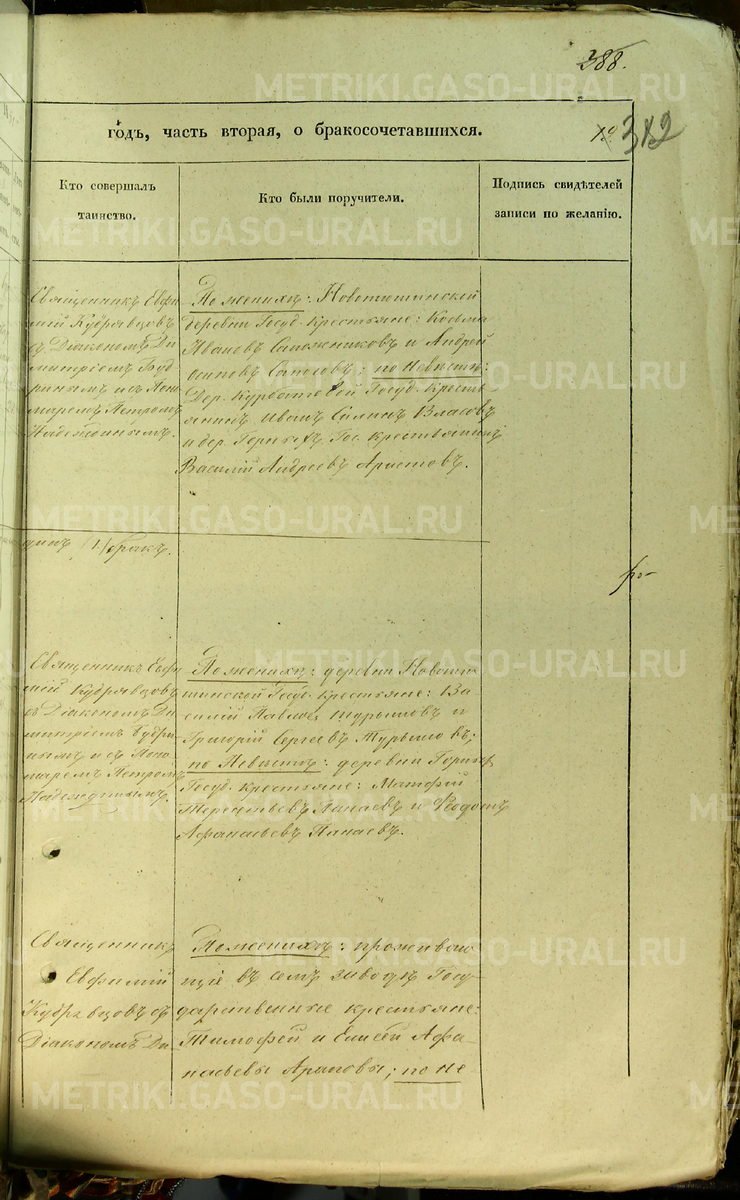 388.
годъ, часть вторая, о бракосочетавшихся.
312
Кто совершалъ
таинство.
Кто были поручители.
Подпись свидѣтелей
записи по желанію.
Священникъ Евфи
мій Кудрявцовъ
съ Діакономъ Ди
митріемъ Буд
ринымъ и съ Поно
маремъ Петромъ
Надеждинымъ.
По женихѣ: Новотюшинской
деревни Госуд. крестьяне: Козьма
Ивановъ Сапожниковъ и Андрей
Осиповъ Саполовъ; по невѣстѣ:
Дер. Государ. крестья
янинъ Иванъ Силинъ Власовъ
и дер. Горныхъ Гос. крестьянинъ
Василій Андреевъ Аристовъ.
динъ (1) бракъ.
Священникъ Евфи
мій Кудрявцовъ
съ Діакономъ Ди
митріемъ Будри
нымъ и съ Поно
маремъ Петромъ
Надеждинымъ.
По женихѣ: деревни Новотю
шинской Госуд. крестьяне: Ва
силій Павловъ и
Григорій Сергеевъ Турышовъ;
по Невѣстѣ: деревни Горныхъ
Госуд. крестьяне: Матфей
Терентьевъ Панаевъ и Ѳеодотъ
Афанасьевъ Панаевъ.
Священникъ
Евфимій
Кудрявцовъ съ
Діакономъ Ди
По женихѣ: проживаю
щіе въ семъ заводѣ Госу-
дарственные крестьяне:
Тимофей и Елисей Афа-
насьевы Араповы; по не
METRIKI.GASO-URAL.RU